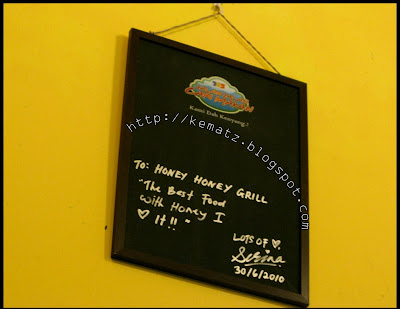 Kami Dah Kenyang..!
http://kematz.blogspot.com
TO: HONEY HONEY GRILL
"The Best Food
With Honey I
♡ It!! "
LOTS OF ♡.
Serina
30/6/2010